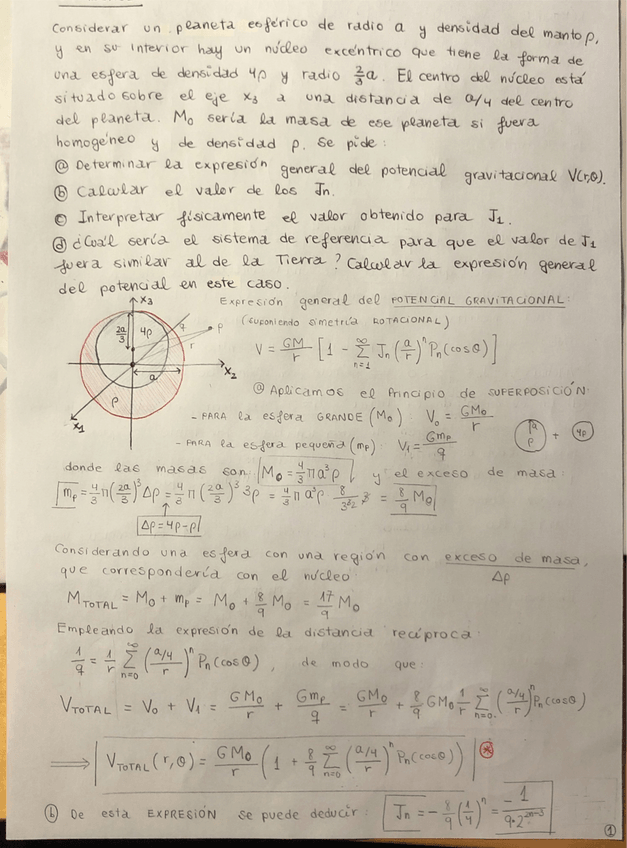 Considerar un planeta esférico de radio a y densidad del manto ρ,
y en su interior hay un núcleo excéntrico que tiene la forma de
una esfera de densidad 4ρ y radio 2/3 a. El centro del núcleo está
situado sobre el eje x₃ a una distancia de a/4 del centro
del planeta. M₀ sería la masa de ese planeta si fuera
homogéneo y de densidad ρ. Se pide:
ⓐ Determinar la expresión general del potencial gravitacional V(r,θ).
ⓑ Calcular el valor de los Jn.
ⓒ Interpretar físicamente el valor obtenido para J₁.
ⓓ ¿Cuál sería el sistema de referencia para que el valor de J₁
fuera similar al de la Tierra? Calcular la expresión general
del potencial en este caso.
x₃
2a/3
4ρ
q
P
r
a
x₂
ρ
x₁
Expresión general del POTENCIAL GRAVITACIONAL:
(suponiendo simetría ROTACIONAL)
V = GM/r [1 - ∑_{n=1}^{∞} Jn (a/r)ⁿ Pn(cosθ)]
ⓐ Aplicamos el Principio de SUPERPOSICIÓN:
- PARA la esfera GRANDE (M₀): V₀ = GM₀/r
- PARA la esfera pequeña (mp): V₁ = Gmp/q
a ρ + 4ρ
donde las masas son: M₀ = 4/3 πa³ρ y el exceso de masa:
mp = 4/3 π(2a/3)³ Δρ = 4/3 π (2a/3)³ 3ρ = 4/3 πa³ρ 8/3³² 3 = 8/9 M₀
Δρ = 4ρ-ρ
Considerando una esfera con una región con exceso de masa,
Δρ
que correspondería con el núcleo:
M_TOTAL = M₀ + mp = M₀ + 8/9 M₀ = 17/9 M₀
Empleando la expresión de la distancia recíproca:
1/q = 1/r ∑_{n=0}^{∞} (a/4/r)ⁿ Pn(cosθ), de modo que:
V_TOTAL = V₀ + V₁ = GM₀/r + Gmp/q = GM₀/r + 8/9 GM₀ 1/r ∑_{n=0}^{∞} (a/4/r)ⁿ Pn(cosθ)
⟹ V_TOTAL(r,θ) = GM₀/r (1 + 8/9 ∑_{n=0}^{∞} (a/4/r)ⁿ Pn(cosθ)) *
ⓑ De esta EXPRESIÓN se puede deducir: Jn = -8/9 (1/4)ⁿ = -1/9·2²ⁿ⁻³
①